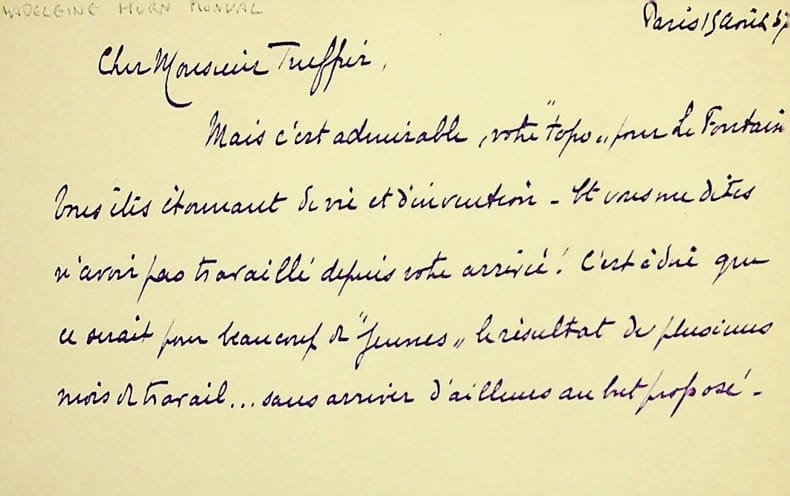 MADELEINE HORN MONVAL
Paris 15 août 57
Cher Monsieur Treffer,
Mais c'est admirable, votre "topo" pour Le Fontain
Vous êtes étonnant de vie et d'invention - Et vous me dites
n'avoir pas travaillé depuis votre arrivée! C'est à dire que
ce serait pour beaucoup de "Jeunes" le résultat de plusieurs
mois de travail... sans arriver d'ailleurs au but proposé -